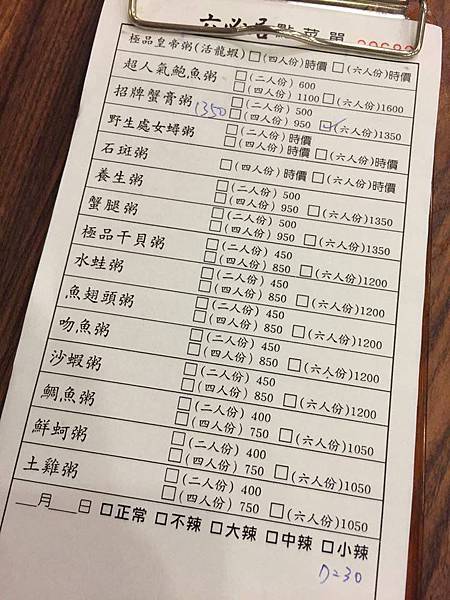 點菜單
極品皇帝粥(活龍蝦) □(四人份)時價 □(六人份)時價
超人氣鮑魚粥 □(二人份) 600
□(四人份) 1100 □(六人份)1600
招牌蟹膏粥 1350 □(二人份) 500
□(四人份) 950 ☑(六人份)1350
野生處女蟳粥 □(二人份)時價
□(四人份)時價 □(六人份)時價
石斑粥 □(四人份)時價 □(六人份)時價
養生粥 □(二人份) 500
□(四人份) 950 □(六人份)1350
蟹腿粥 □(二人份) 500
□(四人份) 950 □(六人份)1350
極品干貝粥 □(二人份) 450
□(四人份) 850 □(六人份)1200
水蛙粥 □(二人份) 450
□(四人份) 850 □(六人份)1200
魚翅頭粥 □(二人份) 450
□(四人份) 850 □(六人份)1200
吻魚粥 □(二人份) 450
□(四人份) 850 □(六人份)1200
沙蝦粥 □(二人份) 450
□(四人份) 850 □(六人份)1200
鯛魚粥 □(二人份) 400
□(四人份) 750 □(六人份)1050
鮮蚵粥 □(二人份) 400
□(四人份) 750 □(六人份)1050
土雞粥 □(二人份) 400
□(四人份) 750 □(六人份)1050
__月__日 □正常 □不辣 □大辣 □中辣 □小辣
D=30